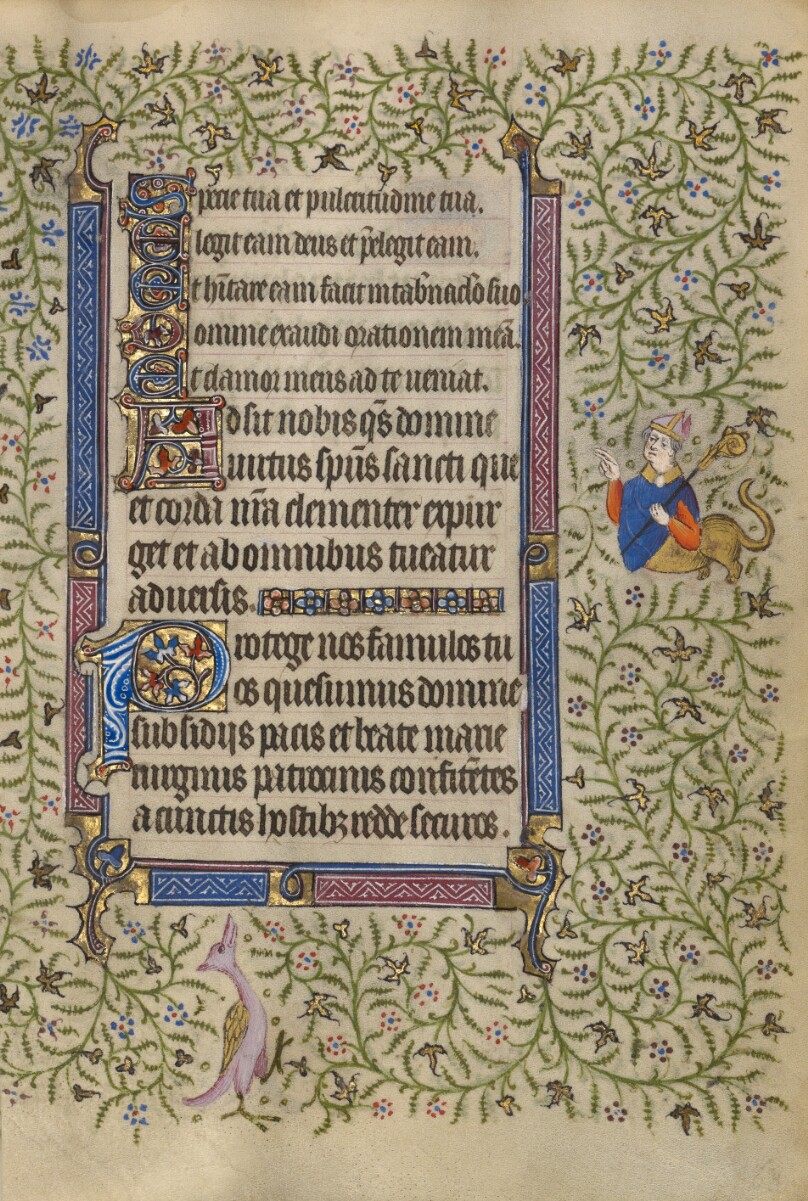 Specie tua et pulcritudine tua.
Elegit eam deus et p̄elegit eam.
Et hītare eam facit in tab̄naclo suo
Domine exaudi orationem meā.
Et clamor meus ad te ueniat.
Adsit nobis q̄s domine
uirtus sp̄us sancti que
et corda nr̄a clementer expur
get et ab omnibus tueatur
aduersis.
Protege nos famulos tu
os quesumus domine
subsidijs pacis et beate marie
uirginis patrociniis confitētes
a cunctis hostibꝫ redde securos.